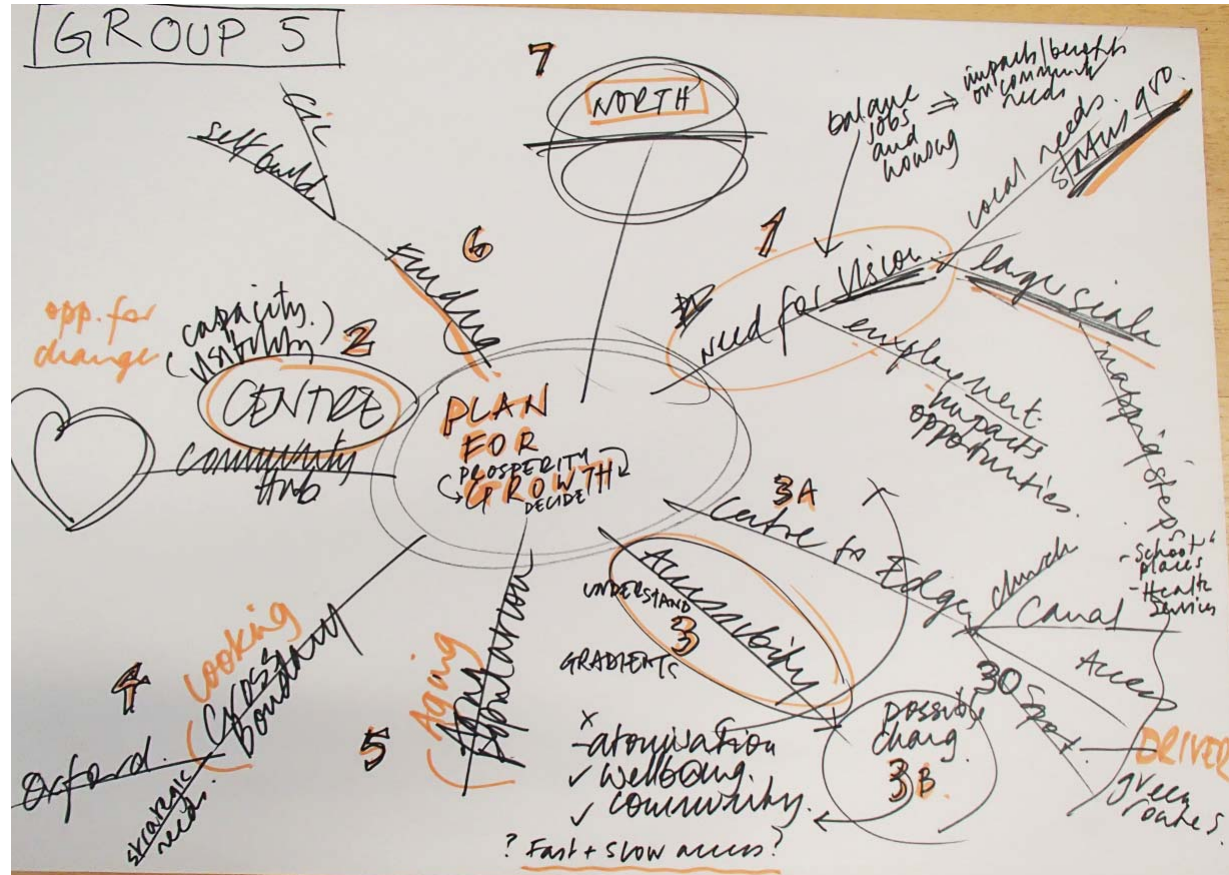 GROUP 5
7
NORTH
CiC
self build
6
Funding
opp. for
change
(capacity.)
(visibility)
2
CENTRE
community
Hub
PLAN
FOR
PROSPERITY
GROWTH
DECIDE
balance
jobs
and
housing
⇒ impacts/benefits
on community
needs
1
need for Vision
local needs.
status quo.
larger scale
mapping steps
- School
places
- Health
Services
employment.
- impacts
opportunities.
3A
X
Centre to Edge
church
Canal
Access
Sport
DRIVER
green
routes.
Accessibility
UNDERSTAND
3
GRADIENTS
possible
chang.
3B
X
- atomisation
✓ wellbeing.
✓ community.
? Fast + Slow access?
Aging
Population
5
Looking
Cross
boundary
4
Oxford.
strategic
needs.